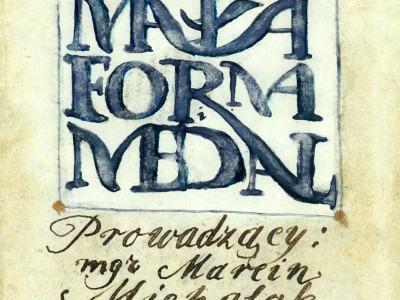 MAŁA
FORMA
i
MEDAL
Prowadzący:
mgr Marcin
Michalak